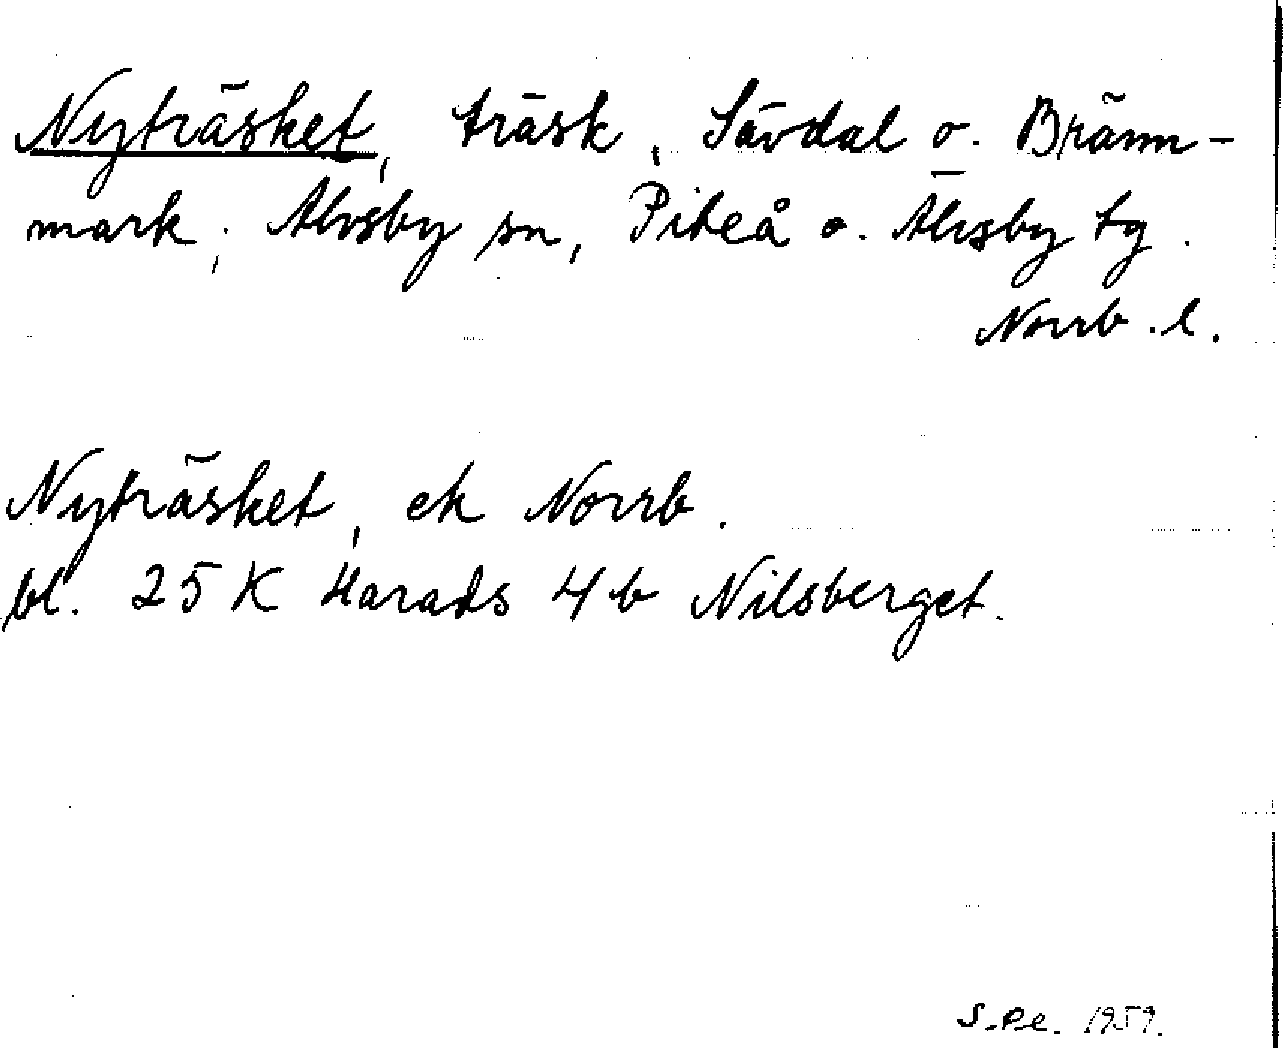 Nyträsket, träsk, Sävdal o. Bränn-
mark, Älvsby sn, Piteå o. Älvsby tg.
Norrb. l.
Nyträsket, ek Norrb.
bl. 25 K Harads 4 b Nilsberget.
S. Pe. 1959.